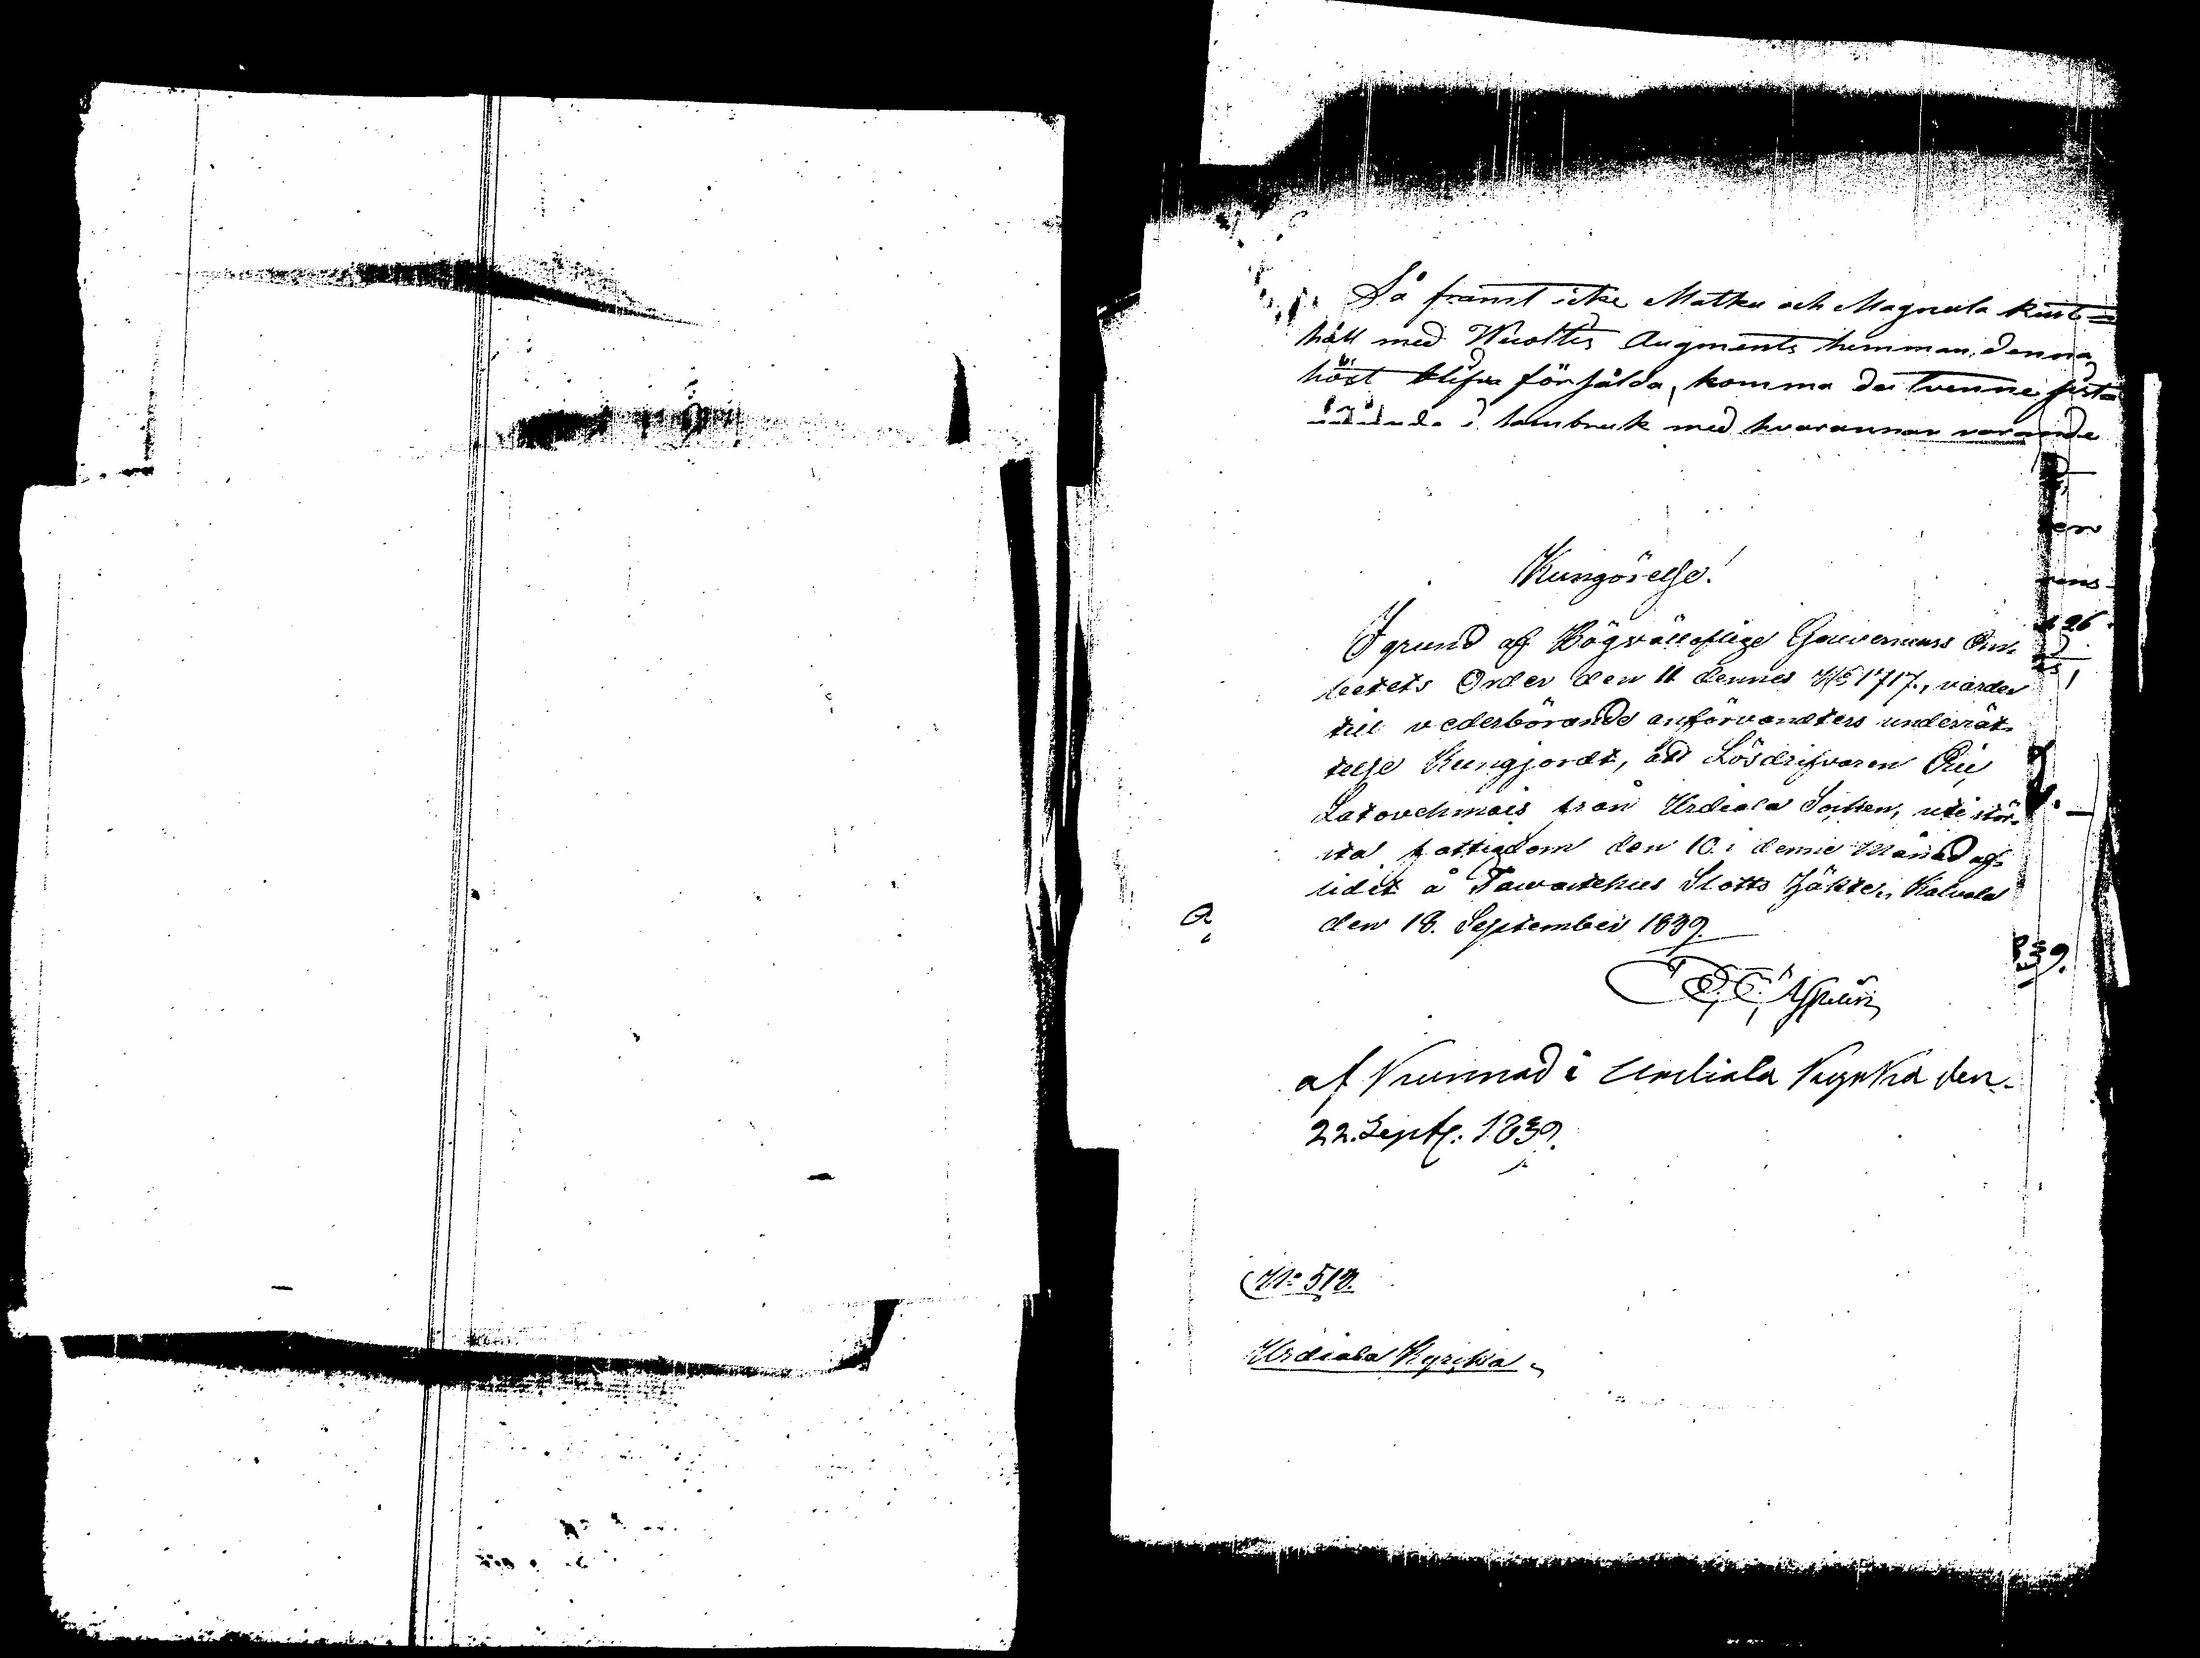 Så framt icke Matku och Magnula Rust=
håll med Wuoltes Augments hemman denna
höst blifva försålda, komma de tvenne först=
nämnda i sambruk med hvarannan varande
Kungörelse!
I grund af Högvällofliga Gouverneurs Em-
betets Order den 11 dennes No 1717., varder
till vederbörande anförvandters underrät-
telse Kungjordt, att Lösdrifvaren
från Urdiala Socken, uti stör-
sta fattigdom den 10 i denne Månad af-
lidit å Tawastehus Slotts Häkte, Kalvola
den 18. September 1839.
af Kunnad i Urdiala Kyrka den
22. Sept. 1839.
No 518.
Urdiala Kyrka
a
ens
26
839.